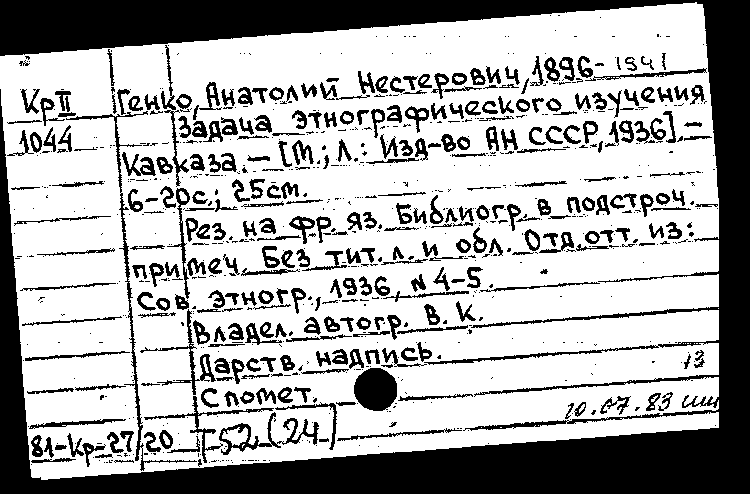 Кр II Генко, Анатолий Нестерович, 1896-1941
1044 Задача этнографического изучения
Кавказа. — [М.; Л.: Изд-во АН СССР, 1936]. —
6-20с.; 25см.
Рез. на фр. яз. Библиогр. в подстроч.
примеч. Без тит. л. и обл. Отд. отт. из:
Сов. этногр., 1936, № 4-5.
Владел. автогр. В. К.
Дарств. надпись.
С помет.
13
10.07.83
81-Кр-27/20 Т52(24)